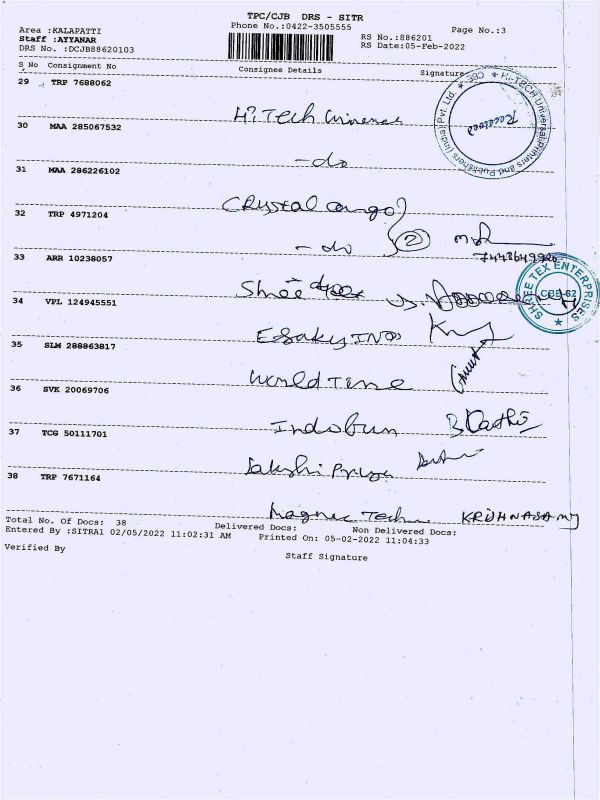 TPC/CJB DRS - SITR
Area :KALAPATTI
Phone No.:0422-3505555
Page No.:3
Staff :AYYANAR
RS No.:886201
DRS No. :DCJB88620103
RS Date:05-Feb-2022
S_No Consignment No Consignee Details Signature
29 TRP 7688062
Hi Tech Universal
Hi-TECH Universal Printers and Publishers (India) Pvt. Ltd. ★ CBE ★
Received
30 MAA 285067532
- do
31 MAA 286226102
Crystal cargo
32 TRP 4971204
- do
2
7448649920
33 ARR 10238057
Shree tex
SHREE TEX ENTERPRISES ★
CBE-62
34 VPL 124945551
Esaky INDS
35 SLM 288863817
World Time
36 SVK 20069706
Indofun
37 TCG 50111701
Sakshi Priya
38 TRP 7671164
Magnec Techn KRISHNASAMY
Total No. Of Docs: 38 Delivered Docs: Non Delivered Docs:
Entered By :SITRA1 02/05/2022 11:02:31 AM Printed On: 05-02-2022 11:04:33
Verified By
Staff Signature